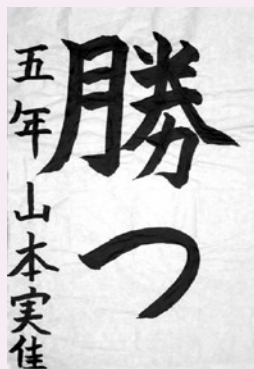 勝つ
五年山本実佳